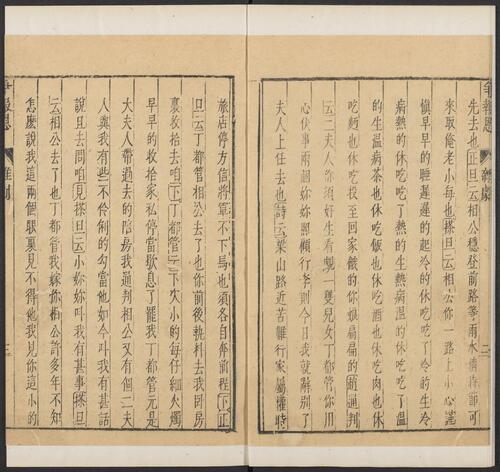 爭報恩 雜劇 二
先去也正旦云相公穩登前路等雨水濟時可
來取俺老小每也搽旦云相公你一路上小心謹
慎早早的睡遲遲的起冷的休吃吃了冷的生冷
病熱的休吃吃了熱的生熱病溫的休吃吃了溫
的生溫病茶也休吃飯也休吃酒也休吃肉也休
吃麪也休吃投至回家餓的你娘扁扁的趙通判
云二夫人你須好生看覷一雙兒女丁都管你用
心伏事兩個妳妳照顧行李則今日我就辭別了
夫人上任去也詩云梁山路近苦難行家屬權時
旅店停方信將軍不下馬也須各自奔前程下正
旦云丁都管相公去了也你前後執料去我臥房
裏收拾去咱下丁都管云下次小的每仔細火燭
早早的收拾家私停當歇息了罷我丁都管元是
大夫人帶過去的陪房我通判相公又有個二夫
人與我有些不伶俐的勾當他如今叫我有甚話
說且去問咱見搽旦云小妳妳叫我有甚事搽旦
云相公去了也丁都管我嫁你相公許多年不知
怎麽說我這兩個眼裏見不得他我見你這小的
爭報恩 雜劇 三